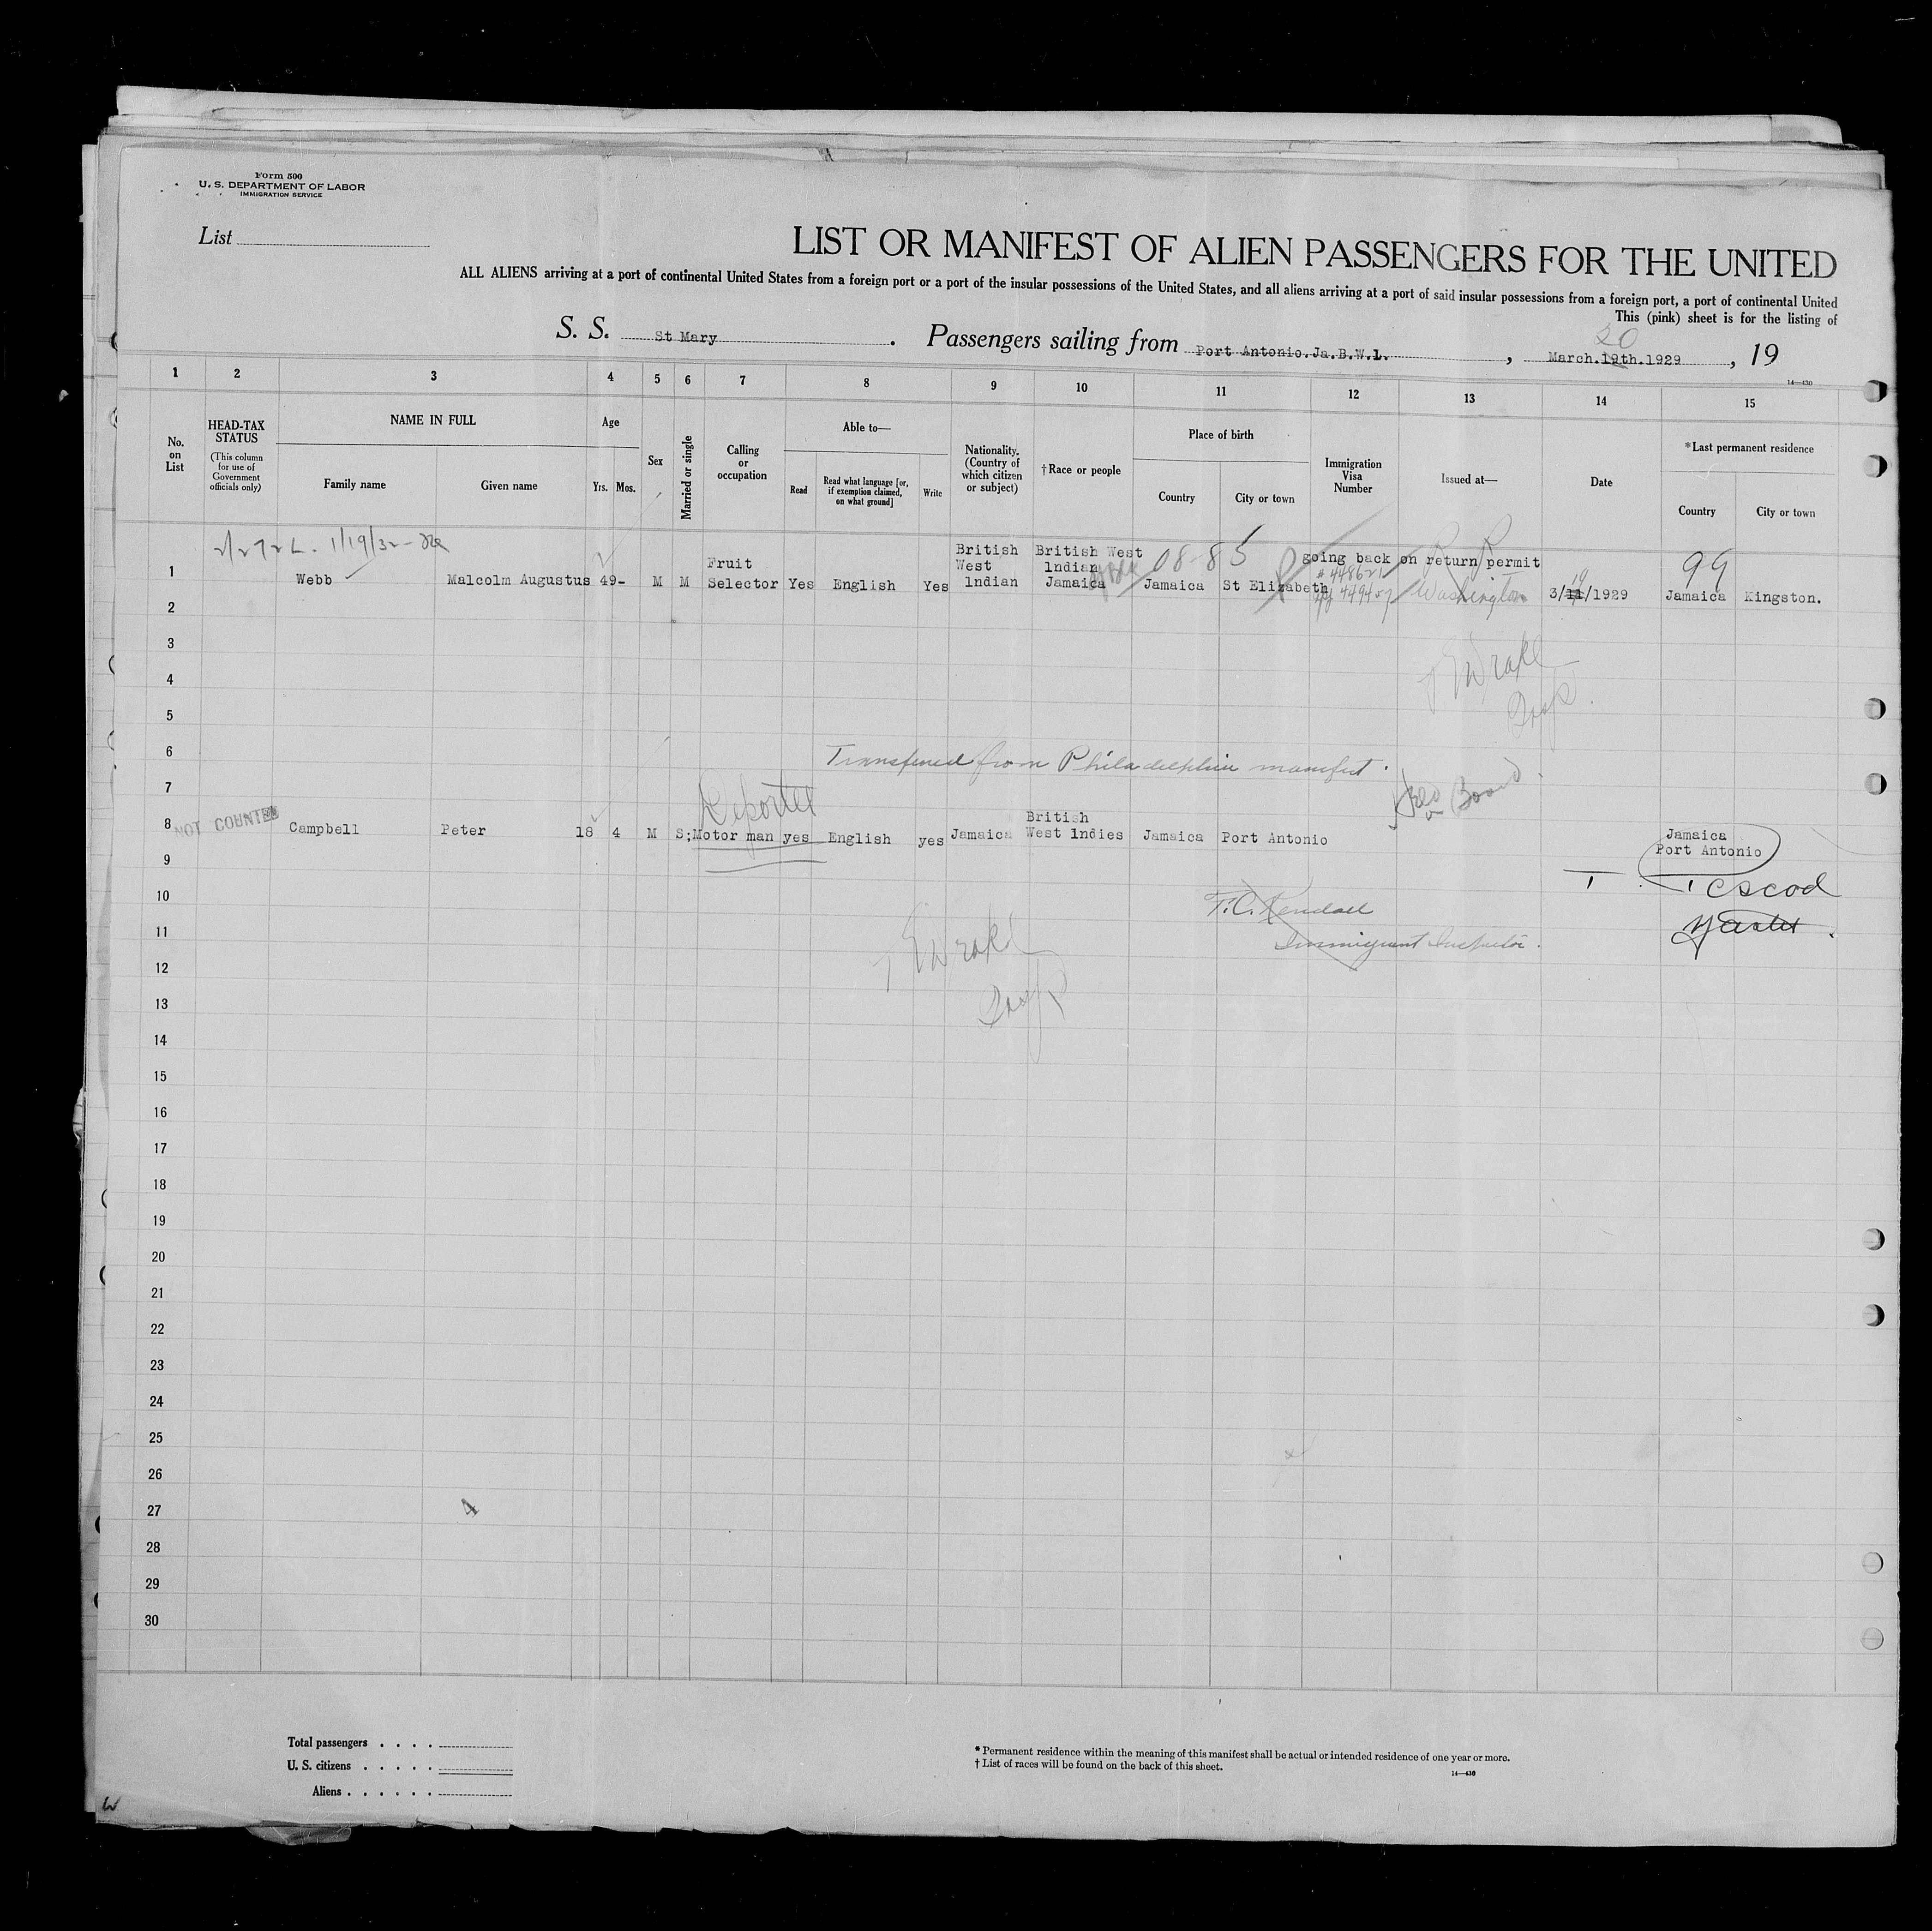 Form 500
U. S. DEPARTMENT OF LABOR
IMMIGRATION SERVICE
List
LIST OR MANIFEST OF ALIEN PASSENGERS FOR THE UNITED
ALL ALIENS arriving at a port of continental United States from a foreign port or a port of the insular possessions of the United States, and all aliens arriving at a port of said insular possessions from a foreign port, a port of continental United
This (pink) sheet is for the listing of
20
S. S. St Mary . Passengers sailing from Port Antonio.Ja.B.W.I. , March.19th.1929 , 19
14—430
1 2 3 4 5 6 7 8 9 10 11 12 13 14 15
No. on List
HEAD-TAX STATUS
(This column for use of Government officials only)
NAME IN FULL
Family name
Given name
Age
Yrs. Mos.
Sex
Married or single
Calling or occupation
Able to—
Read
Read what language [or, if exemption claimed, on what ground]
Write
Nationality. (Country of which citizen or subject)
†Race or people
Place of birth
Country
City or town
Immigration Visa Number
Issued at—
Date
*Last permanent residence
Country
City or town
1/19/32
1 Webb Malcolm Augustus 49- M M Fruit Selector Yes English Yes British West Indian British West Indian Jamaica 08-85 Jamaica St Elizabeth going back on return permit
#448621 Washington 3/11/1929 99 Jamaica Kingston.
2
3
4
5
6
Transfered from Philadelphia manifest.
7
Deported
8 NOT COUNTED Campbell Peter 18 4 M S; Motor man yes English yes Jamaica British West Indies Jamaica Port Antonio Jamaica Port Antonio
9
10
T.C. Kendall
11
Immigrant Inspector.
12
13
14
15
16
17
18
19
20
21
22
23
24
25
26
27
4
28
29
30
Total passengers . . . .
U. S. citizens . . . . .
Aliens . . . . . .
* Permanent residence within the meaning of this manifest shall be actual or intended residence of one year or more.
† List of races will be found on the back of this sheet.
14—430